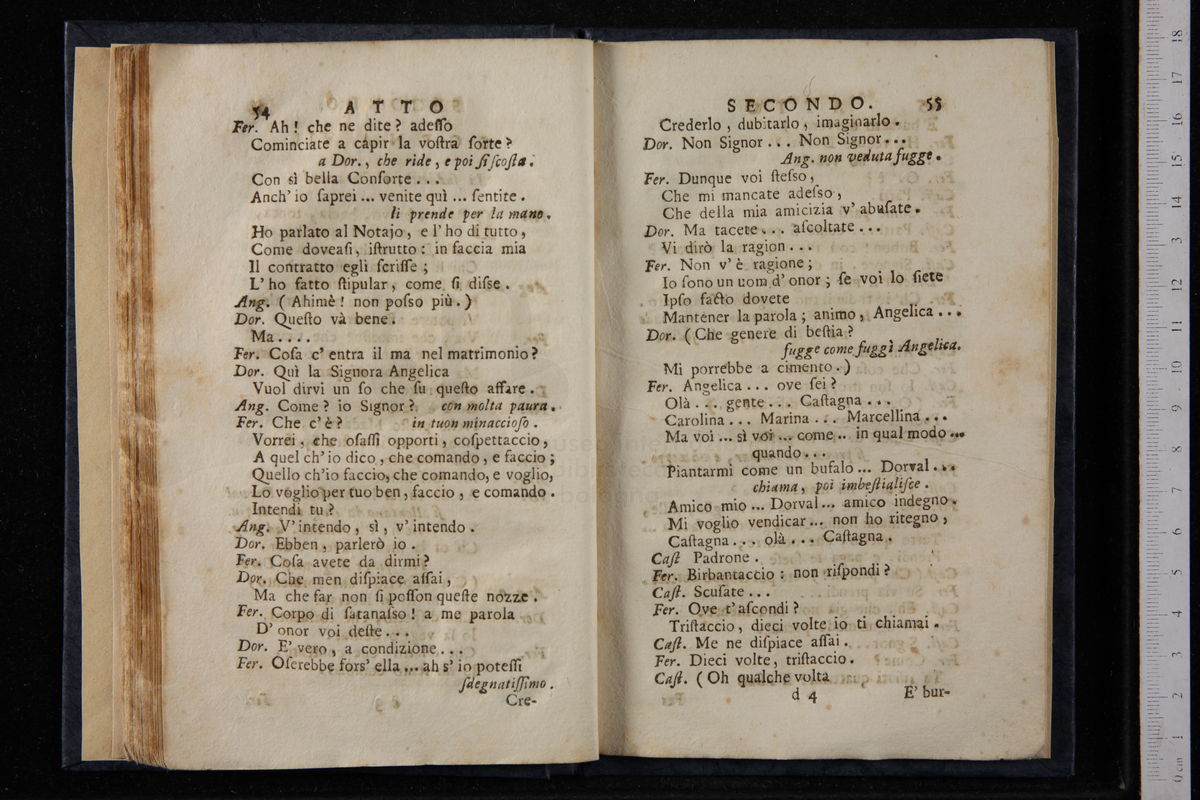 54 ATTO
Fer. Ah! che ne dite? adeſſo
Cominciate a capir la voſtra ſorte?
a Dor., che ride, e poi ſi ſcoſta.
Con sì bella Conſorte...
Anch' io ſaprei... venite quì... ſentite.
li prende per la mano.
Ho parlato al Notajo, e l' ho di tutto,
Come doveaſi, iſtrutto: in faccia mia
Il contratto egli ſcriſſe;
L' ho fatto ſtipular, come ſi diſse.
Ang. (Ahimè! non poſso più.)
Dor. Queſto và bene.
Ma....
Fer. Coſa c' entra il ma nel matrimonio?
Dor. Quì la Signora Angelica
Vuol dirvi un ſo che ſu queſto affare.
Ang. Come? io Signor? con molta paura.
Fer. Che c' è? in tuon minaccioſo.
Vorrei, che oſaſſi opporti, coſpettaccio,
A quel ch' io dico, che comando, e faccio;
Quello ch'io faccio, che comando, e voglio,
Lo voglio per tuo ben, faccio, e comando.
Intendi tu?
Ang. V' intendo, sì, v' intendo.
Dor. Ebben, parlerò io.
Fer. Coſa avete da dirmi?
Dor. Che men diſpiace aſſai,
Ma che far non ſi poſſon queſte nozze.
Fer. Corpo di ſatanaſso! a me parola
D' onor voi deſte...
Dor. E' vero, a condizione...
Fer. Oſerebbe fors' ella... ah s' io poteſſi
ſdegnatiſſimo.
Cre-
SECONDO. 55
Crederlo, dubitarlo, imaginarlo.
Dor. Non Signor... Non Signor...
Ang. non veduta fugge.
Fer. Dunque voi ſteſso,
Che mi mancate adeſso,
Che della mia amicizia v' abuſate.
Dor. Ma tacete... aſcoltate...
Vi dirò la ragion...
Fer. Non v' è ragione;
Io ſono un uom d' onor; ſe voi lo ſiete
Ipſo facto dovete
Mantener la parola; animo, Angelica...
Dor. (Che genere di beſtia?
fugge come fuggì Angelica.
Mi porrebbe a cimento.)
Fer. Angelica... ove ſei?
Olà... gente... Caſtagna...
Carolina... Marina... Marcellina...
Ma voi... sì voi... come.. in qual modo...
quando...
Piantarmi come un bufalo... Dorval...
chiama, poi imbeſtialiſce.
Amico mio... Dorval... amico indegno.
Mi voglio vendicar... non ho ritegno,
Caſtagna... olà... Caſtagna.
Caſt Padrone.
Fer. Birbantaccio: non riſpondi?
Caſt. Scuſate...
Fer. Ove t' aſcondi?
Triſtaccio, dieci volte io ti chiamai.
Caſt. Me ne diſpiace aſſai.
Fer. Dieci volte, triſtaccio.
Caſt. (Oh qualche volta
d 4 E' bur-